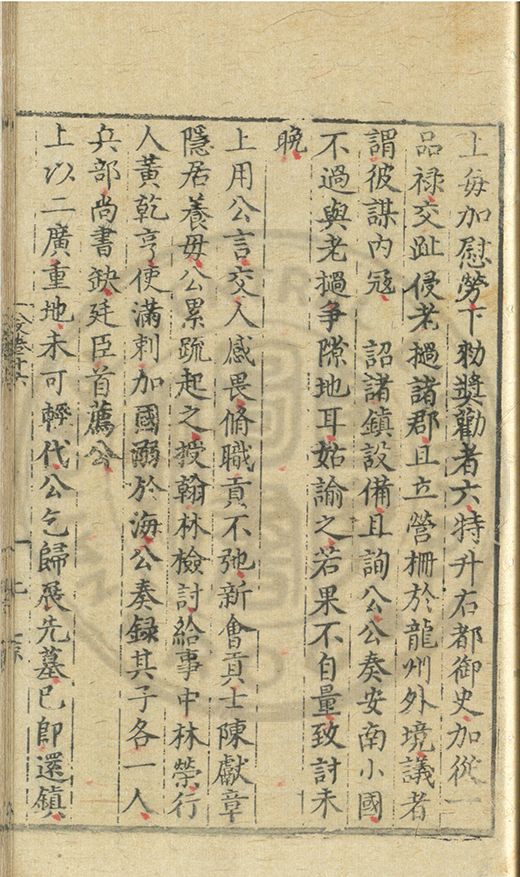 上每加慰勞下勑奬勸者六特升右都御史加從一
品祿交趾侵老撾諸郡且立營柵於龍州外境議者
謂彼謀内冦　詔諸鎮設備且詢公公奏安南小國
不過與老撾爭隙地耳姑諭之若果不自量致討未
晩
上用公言交人感畏脩職貢不弛新會貢士陳獻章
隱居養母公累䟽起之授翰林檢討給事中林榮行
人黃乾亨使滿剌加國溺於海公奏録其子各一人
兵部尚書缺廷臣首薦公
上以二廣重地未可輕代公乞歸展先墓已即還鎮